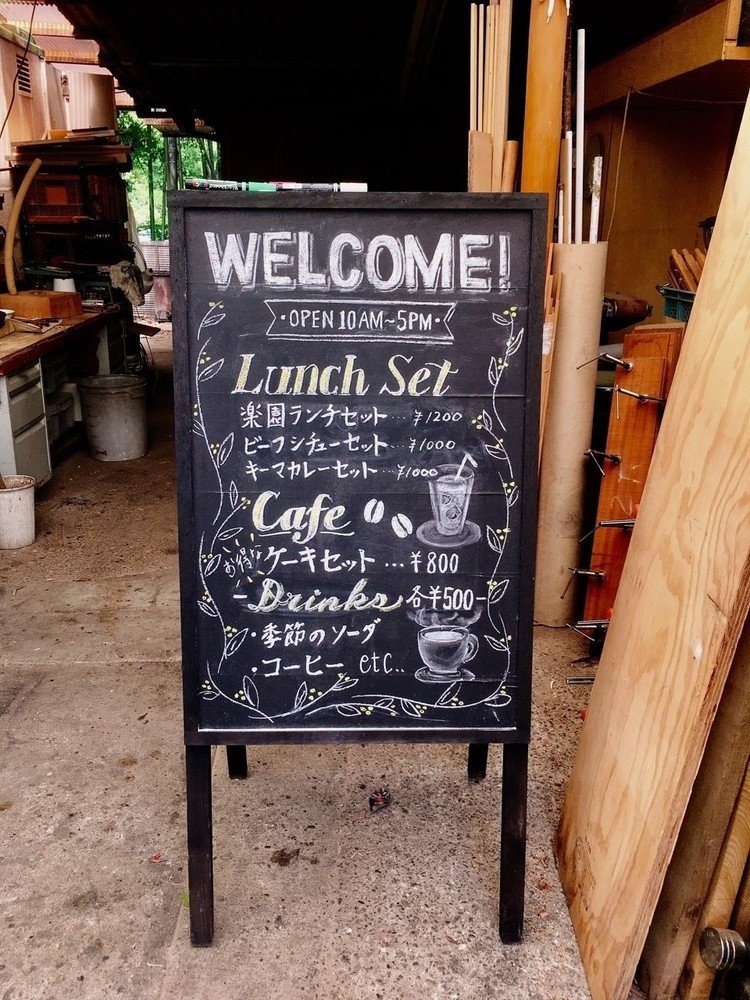 WELCOME!
・OPEN 10AM~5PM・
Lunch Set
楽園ランチセット…¥1200
ビーフシチューセット…¥1000
キーマカレーセット…¥1000
Cafe
お得な ケーキセット…¥800
-Drinks 各¥500-
・季節のソーダ
・コーヒー etc..